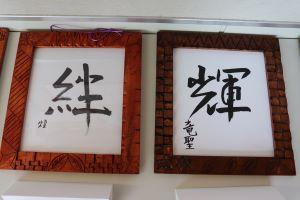 絆
輝
竜聖